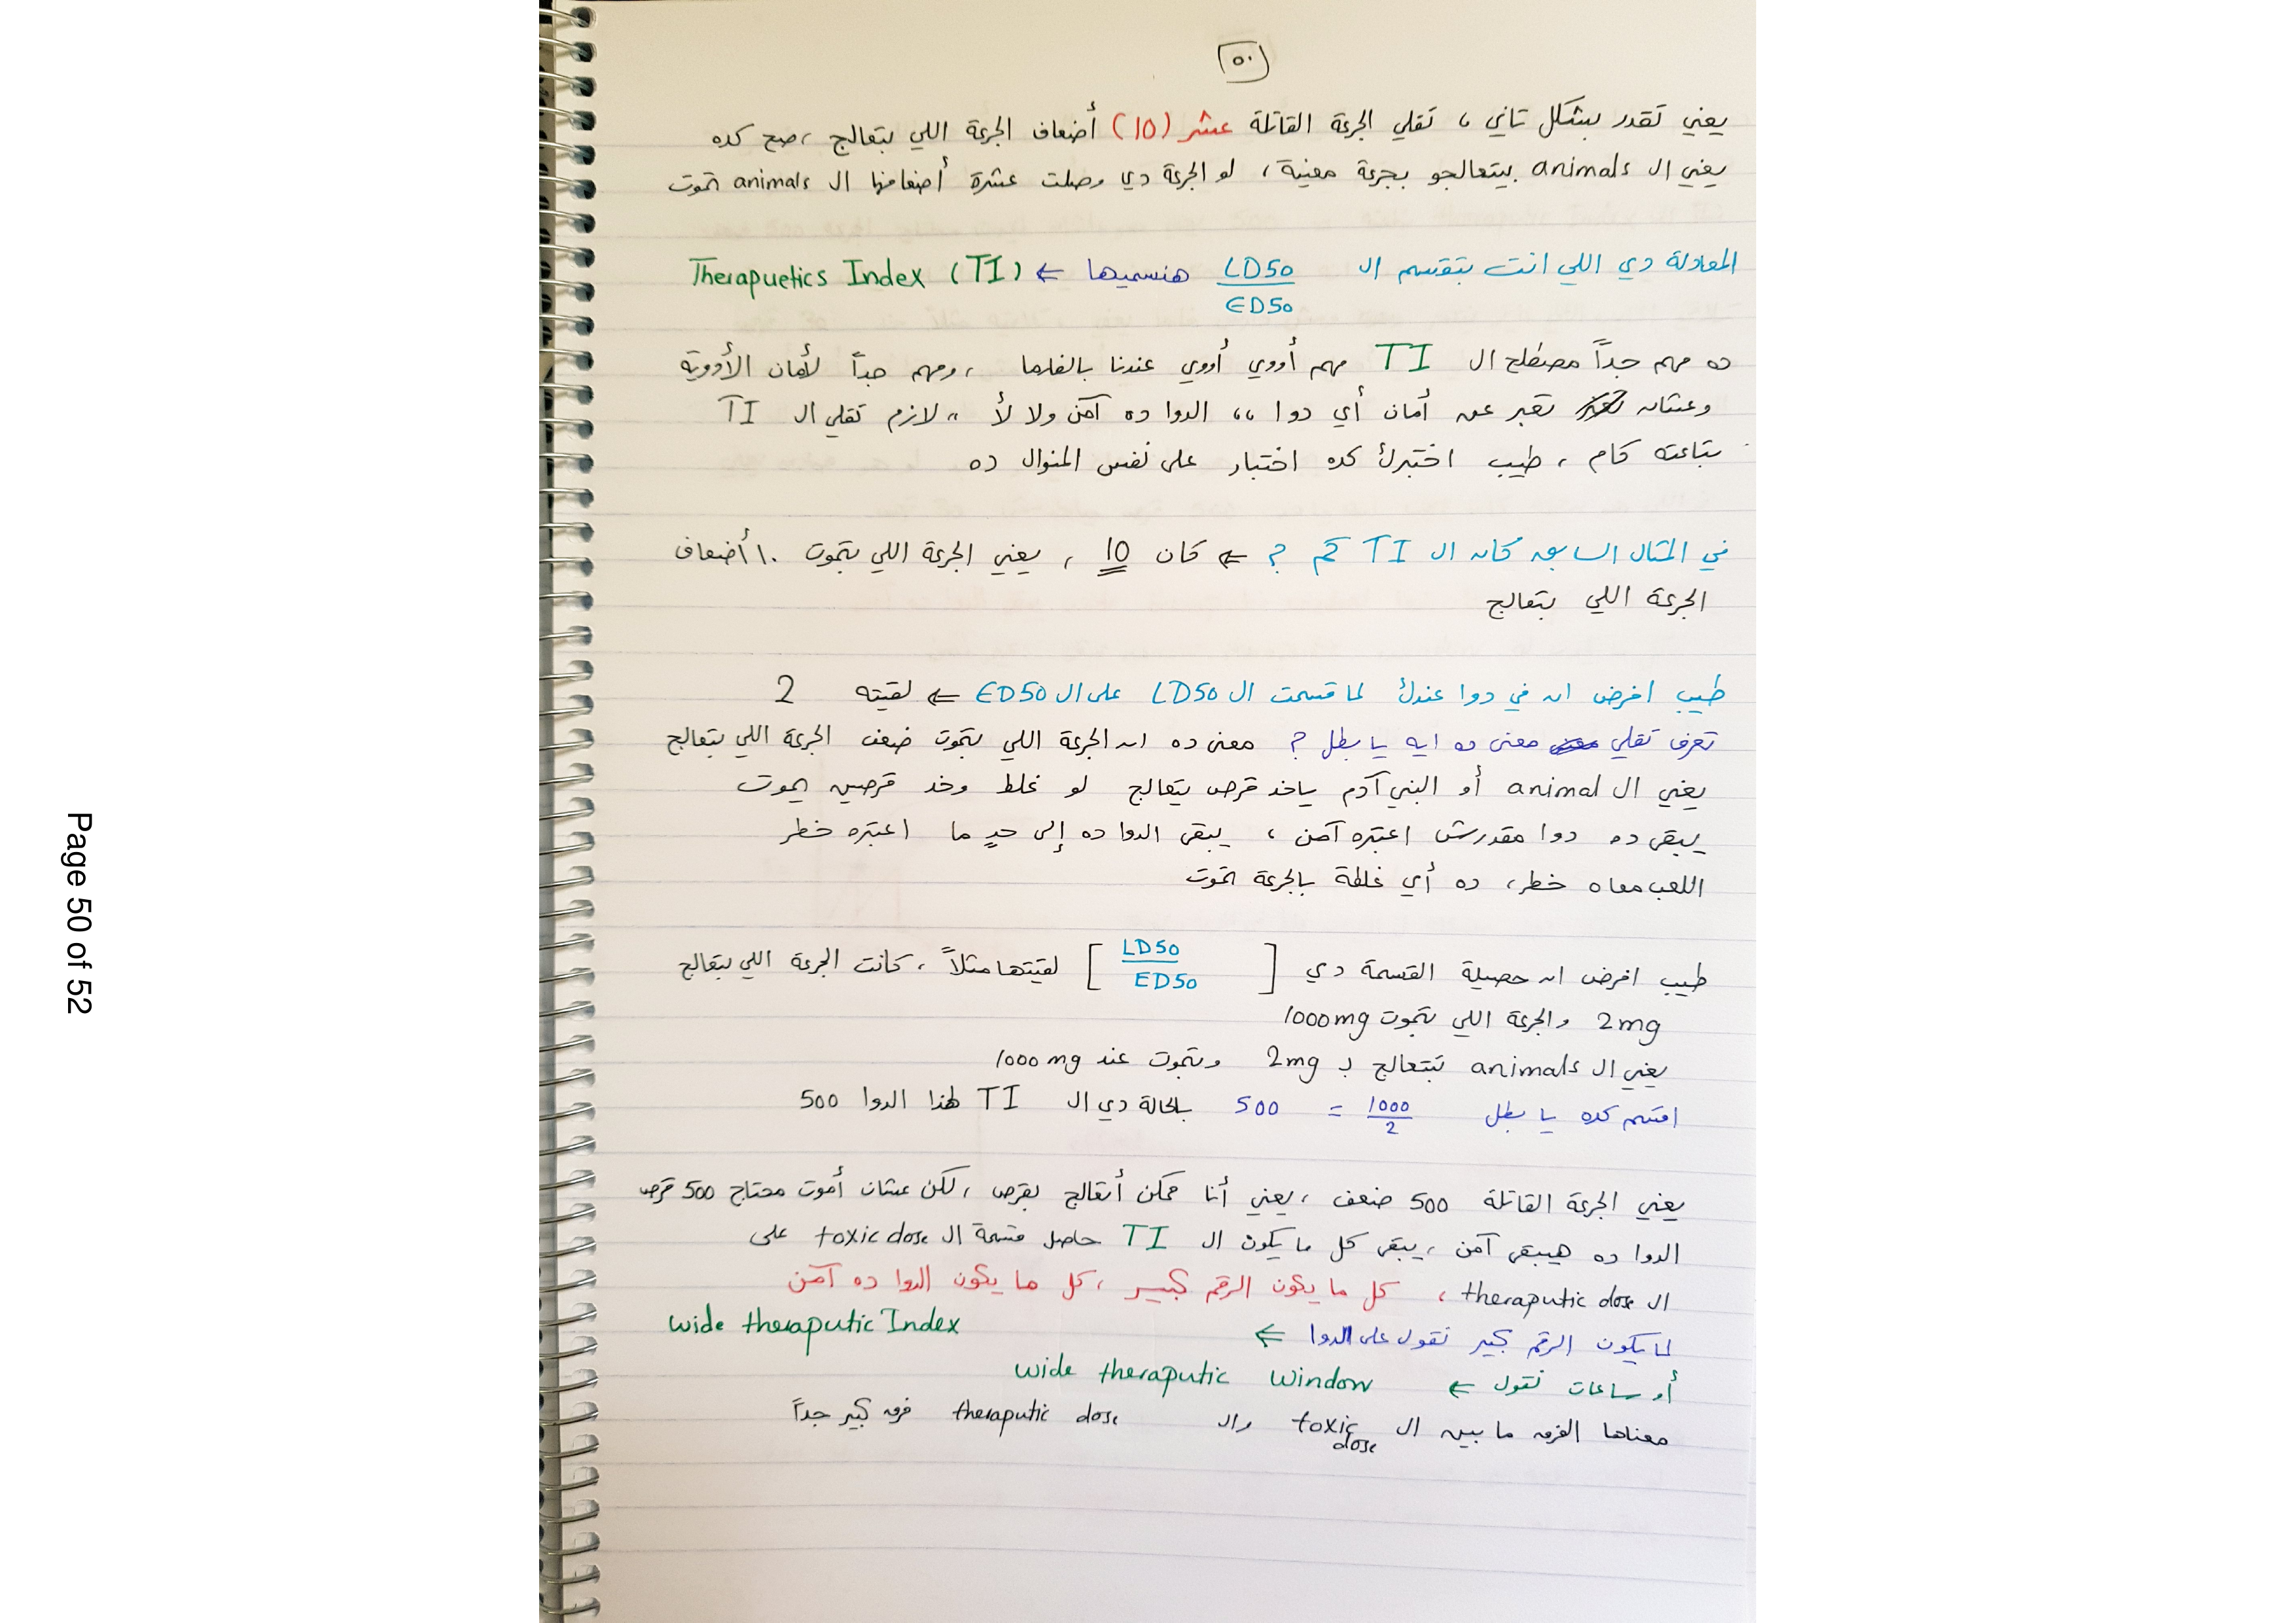 ٥٠
يعني تقدر بشكل تاني ، تقلي الجرعة القاتلة عشر (10) أضعاف الجرعة اللي بتعالج ، صح كده
يعني ال animals بيتعالجو بجرعة معينة ، لو الجرعة دي وصلت عشرة أضعافها ال animals تموت
المعادلة دي اللي انت بتقسم ال LD50 / ED50 هنسميها ← Therapuetics Index (TI)
ده مهم جداً مصطلح ال TI مهم أووي أووي عندنا بالفارما ، ومهم جداً لأمان الأدوية
وعشان تعبر عن أمان أي دوا ،، الدوا ده آمن ولا لأ ،، لازم تقلي ال TI
بتاعته كام ، طيب اختبرك كده اختبار على نفس المنوال ده
في المثال السابق كان ال TI كم ؟ ← كان 10 ، يعني الجرعة اللي بتموت ١٠ أضعاف
الجرعة اللي بتعالج
طيب افرض ان في دوا عندك لما قسمت ال LD50 على ال ED50 ← لقيته 2
تعرف تقلي معنى ده ايه يا بطل ؟ معنى ده ان الجرعة اللي بتموت ضعف الجرعة اللي بتعالج
يعني ال animal أو البني آدم ياخد قرص يتعالج لو غلط وخد قرصين يموت
يبقى ده دوا مقدرش اعتبره آمن ، يبقى الدوا ده إلى حدٍ ما اعتبره خطر
اللعب معاه خطر ، ده أي غلطة بالجرعة تموت
طيب افرض ان حصيلة القسمة دي [ LD50 / ED50 ] لقيتها مثلاً ، كانت الجرعة اللي بتعالج
2mg والجرعة اللي بتموت 1000mg
يعني ال animals بتتعالج ب 2mg وتموت عند 1000mg
اقسم كده يا بطل 1000 / 2 = 500 بالحالة دي ال TI لهذا الدوا 500
يعني الجرعة القاتلة 500 ضعف ، يعني أنا ممكن أتعالج بقرص ، لكن عشان أموت محتاج 500 قرص
الدوا ده هيبقى آمن ، يبقى كل ما يكون ال TI حاصل قسمة ال toxic dose على
ال theraputic dose ، كل ما يكون الرقم كبير ، كل ما يكون الدوا ده آمن
لما يكون الرقم كبير نقول على الدوا ← wide theraputic Index
أو ساعات نقول ← wide theraputic window
معناها الفرق ما بين ال toxic dose وال theraputic dose فرق كبير جداً
Page 50 of 52